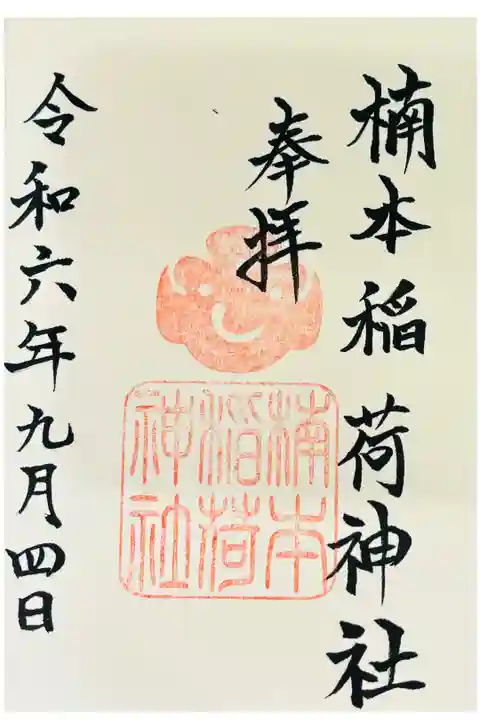 楠本稲荷神社
奉拝
楠本
稲荷
神社
令和六年九月四日